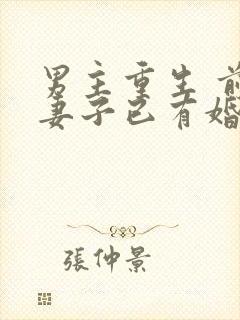 男主重生 前
妻子已有婚
張仲景